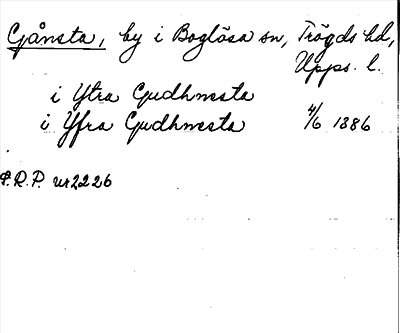 Gånsta, by i Boglösa sn, Trögds hd,
Upps. l.
i Ytra Gudhmesta
i Yfra Gudhmesta 4/6 1386
S.R.P. nr 2226